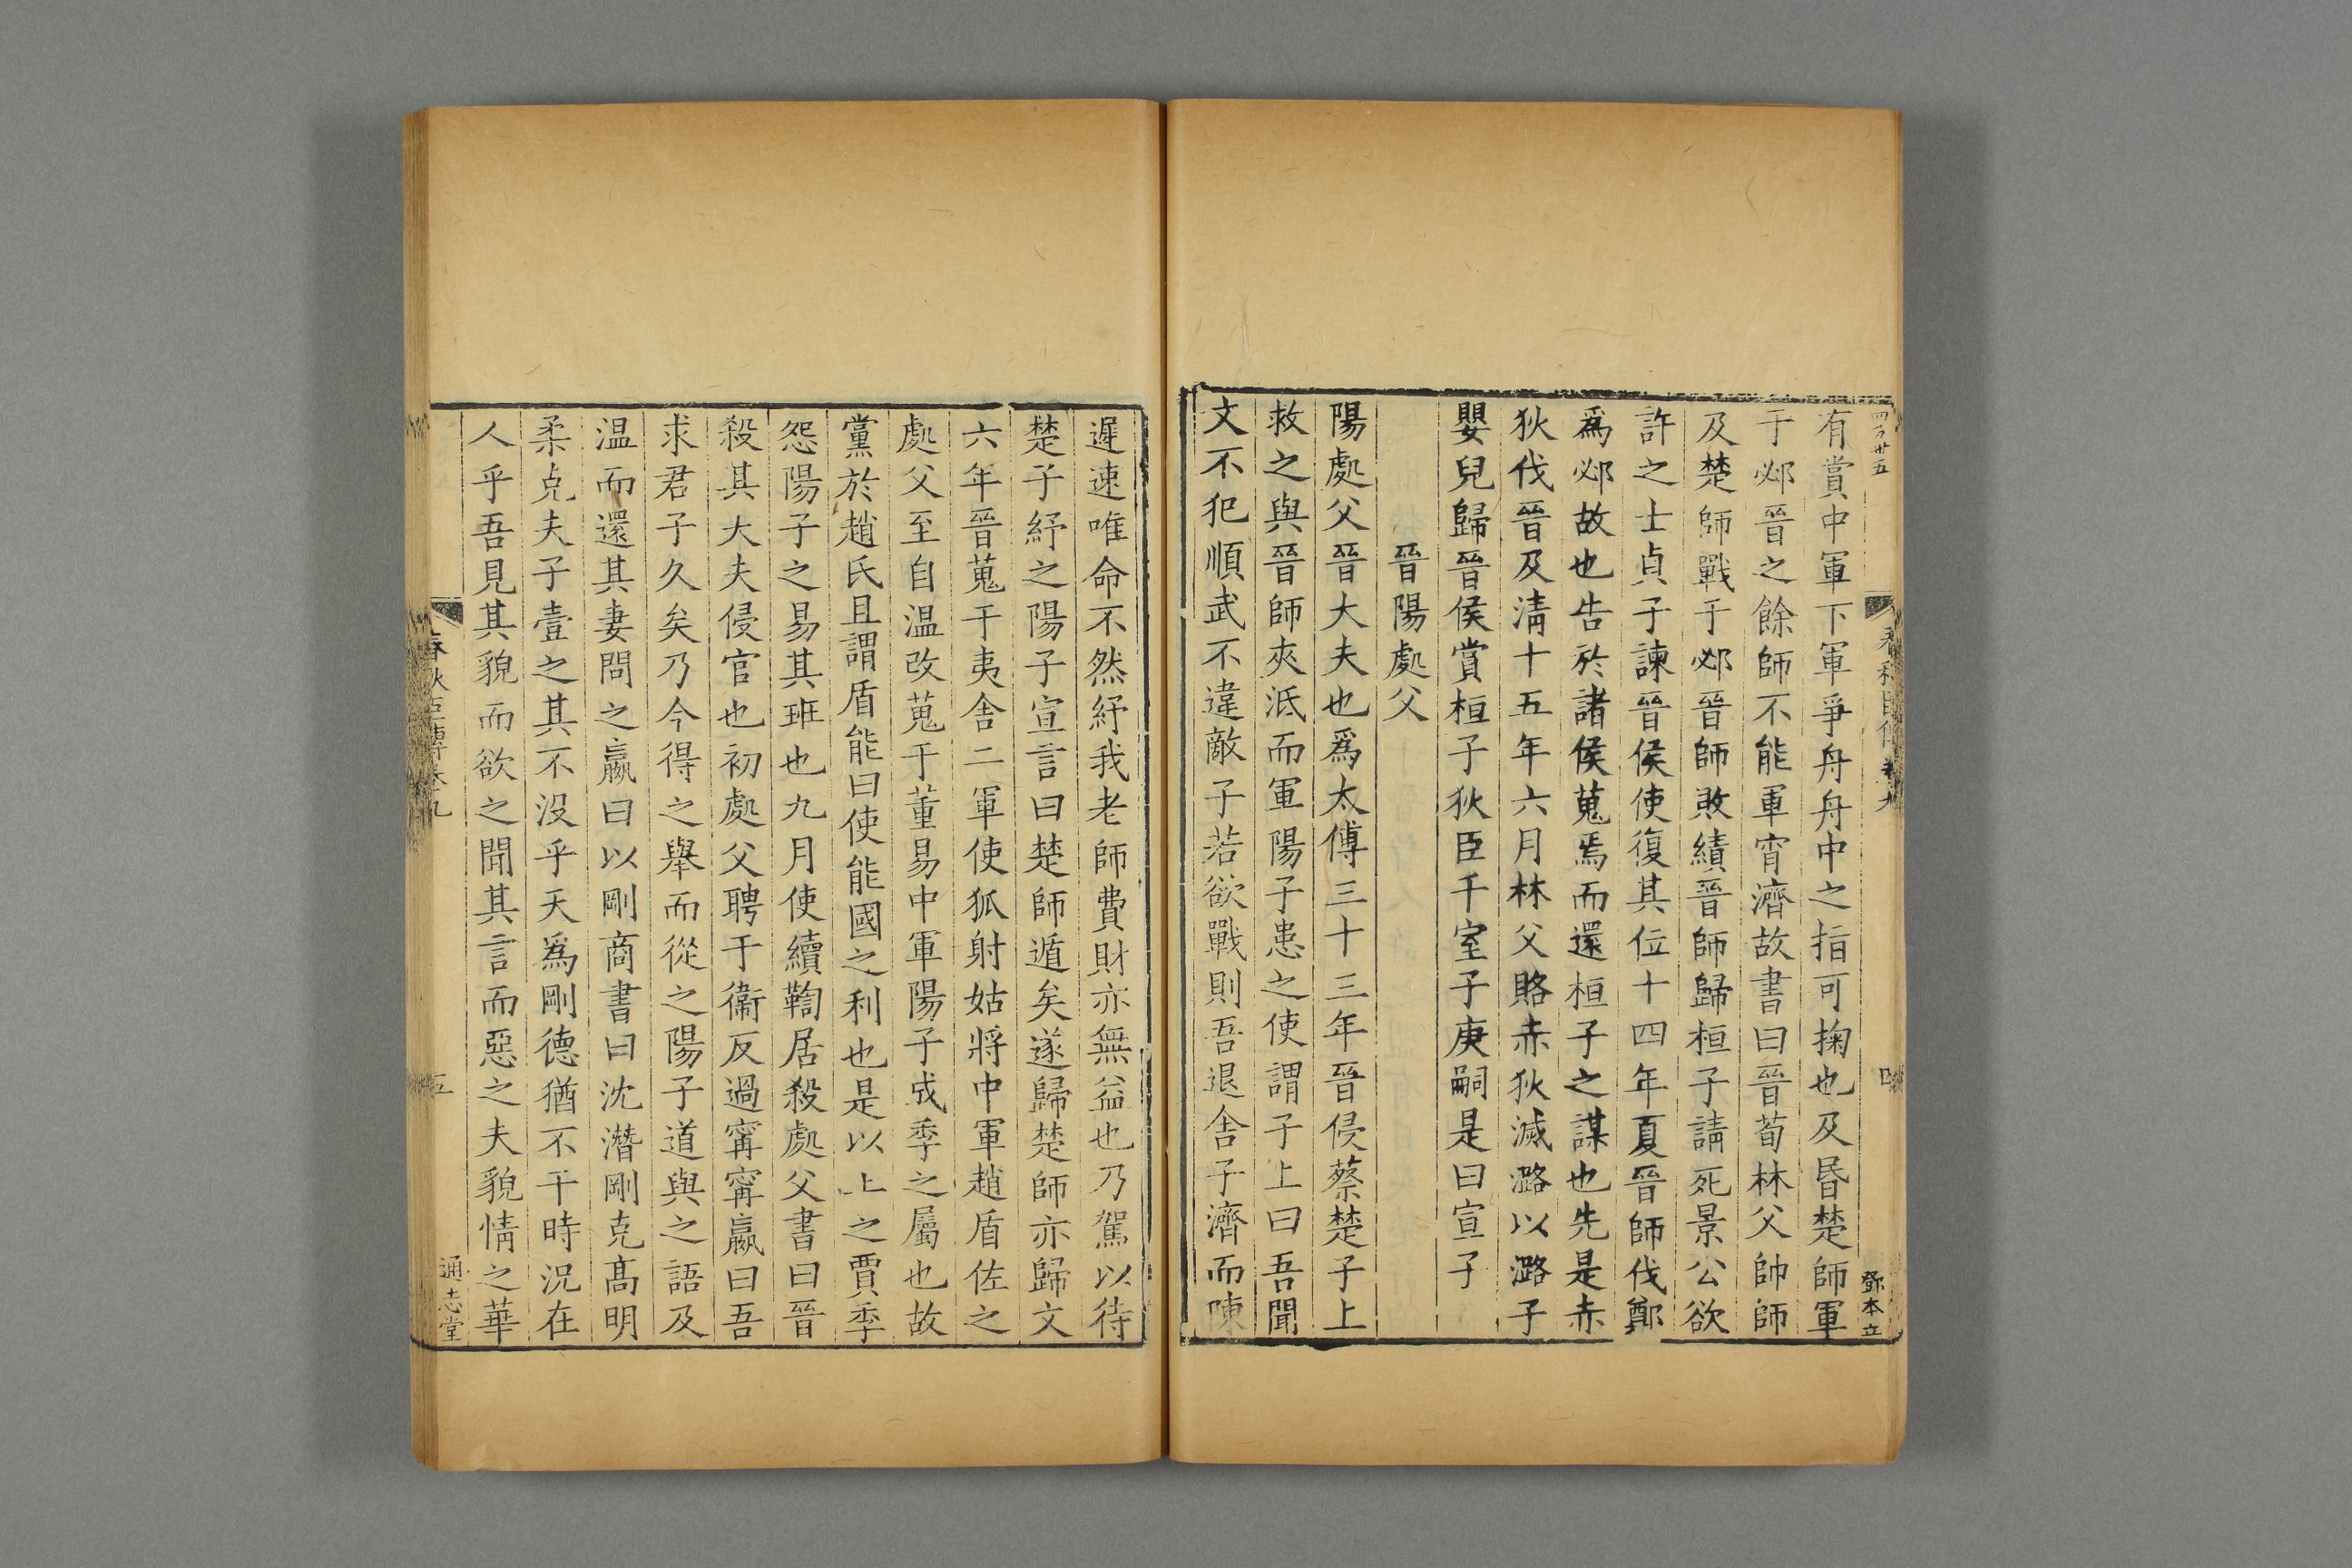 四百廿五
鄧本立
有賞中軍下軍爭舟舟中之指可掬也及昏楚師軍
于邲晉之餘師不能軍宵濟故書曰晉荀林父帥師
及楚師戰于邲晉師敗績晉師歸桓子請死景公欲
許之士貞子諫晉侯使復其位十四年夏晉師伐鄭
爲邲故也告於諸侯蒐焉而還桓子之謀也先是赤
狄伐晉及清十五年六月林父賂赤狄滅潞以潞子
嬰兒歸晉侯賞桓子狄臣千室子庚嗣是曰宣子
晉陽處父
陽處父晉大夫也爲太傅三十三年晉侵蔡楚子上
救之與晉師夾泜而軍陽子患之使謂子上曰吾聞
文不犯順武不違敵子若欲戰則吾退舍子濟而陳
遲速唯命不然紓我老師費財亦無益也乃駕以待
楚子紓之陽子宣言曰楚師遁矣遂歸楚師亦歸文
六年晉蒐于夷舍二軍使狐射姑將中軍趙盾佐之
處父至自温改蒐于董易中軍陽子成季之屬也故
黨於趙氏且謂盾能曰使能國之利也是以上之賈季
怨陽子之易其班也九月使續鞫居殺處父書曰晉
殺其大夫侵官也初處父聘于衞反過甯甯嬴曰吾
求君子久矣乃今得之舉而從之陽子道與之語及
温而還其妻問之嬴曰以剛商書曰沈潛剛克高明
柔克夫子壹之其不没乎天爲剛德猶不干時況在
人乎吾見其貌而欲之聞其言而惡之夫貌情之華
春秋臣傳卷九
五
通志堂